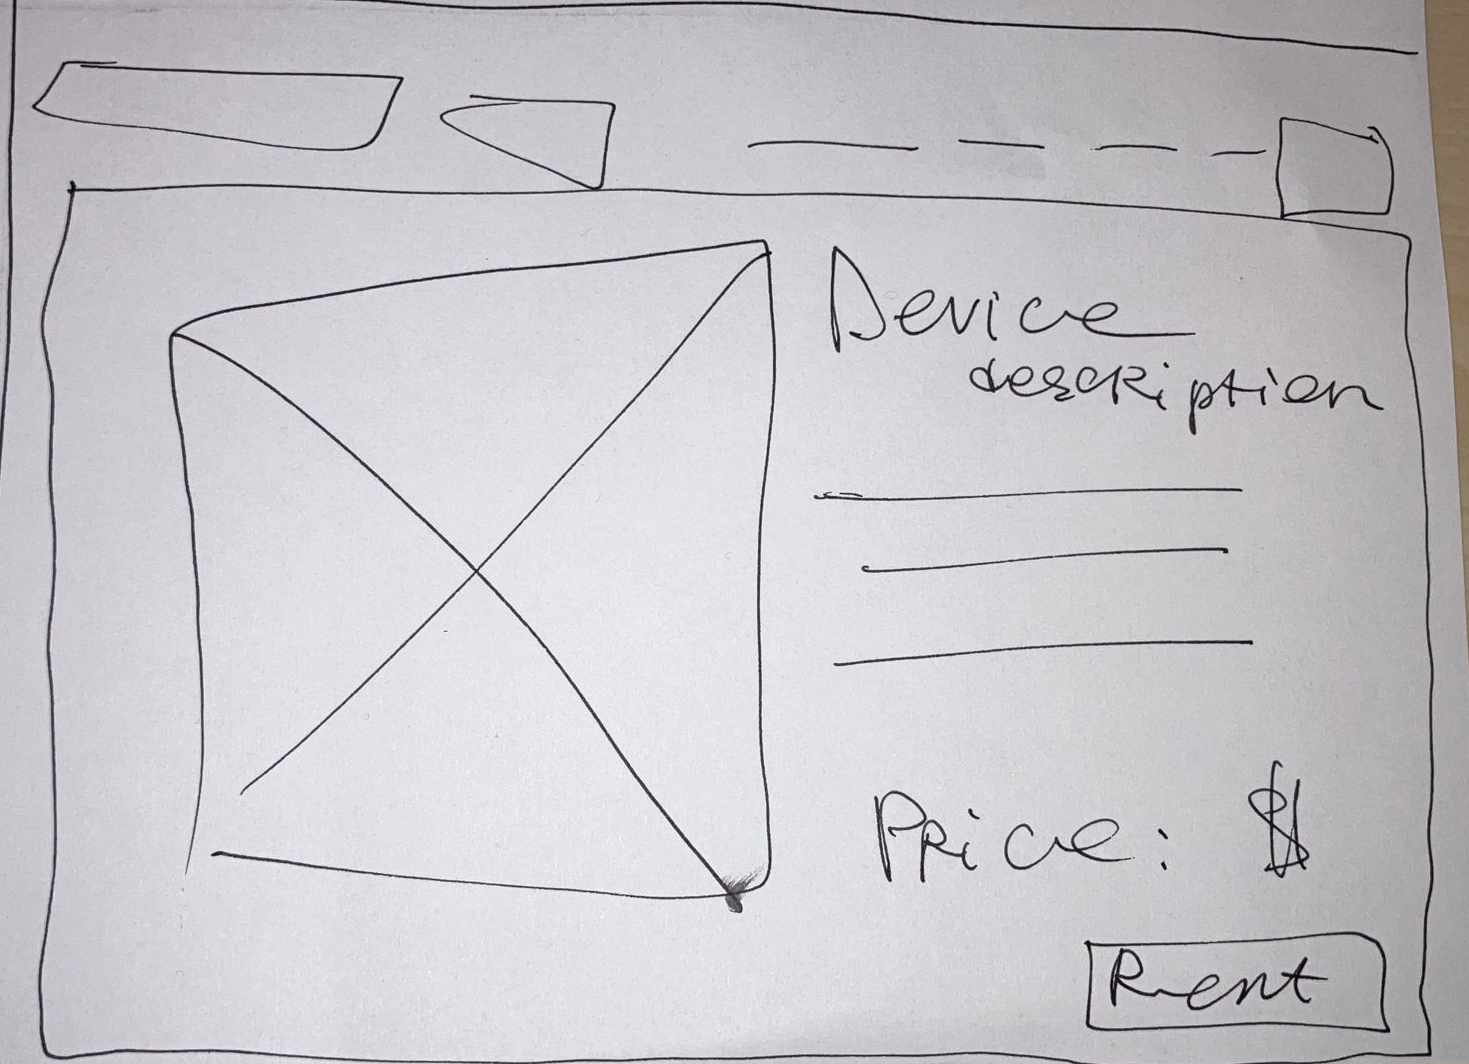 Device
description
Price: $
Rent